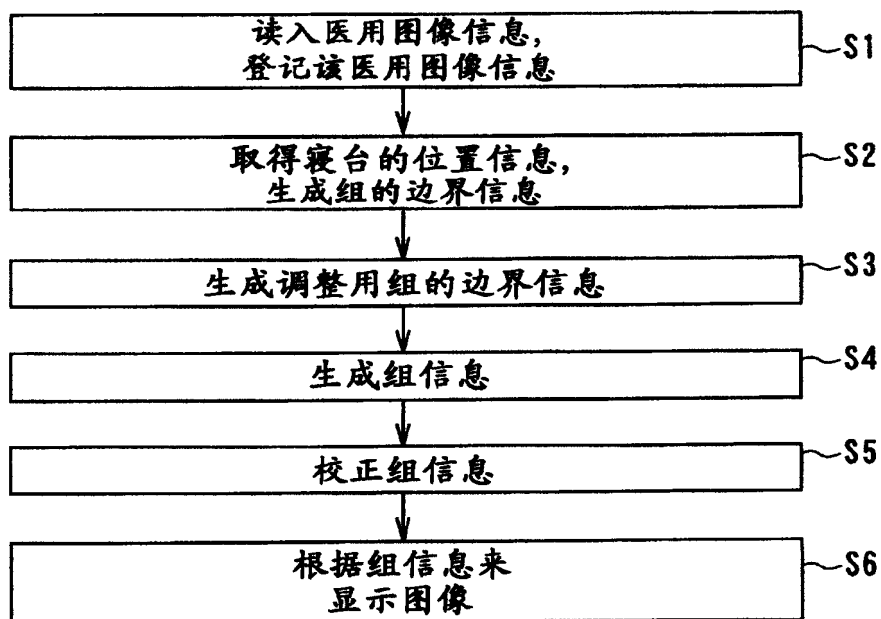 读入医用图像信息,
登记该医用图像信息
S1
取得寝台的位置信息,
生成组的边界信息
S2
生成调整用组的边界信息
S3
生成组信息
S4
校正组信息
S5
根据组信息来
显示图像
S6